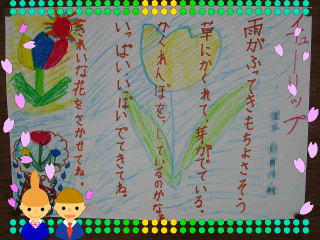 チューリップ
雨がふってきもちよさそう
草にかくれて、芽がでている。
かくれんぼを、しているのかな。
いっぱいいっぱいでてきてね。
きれいな花をさかせてね